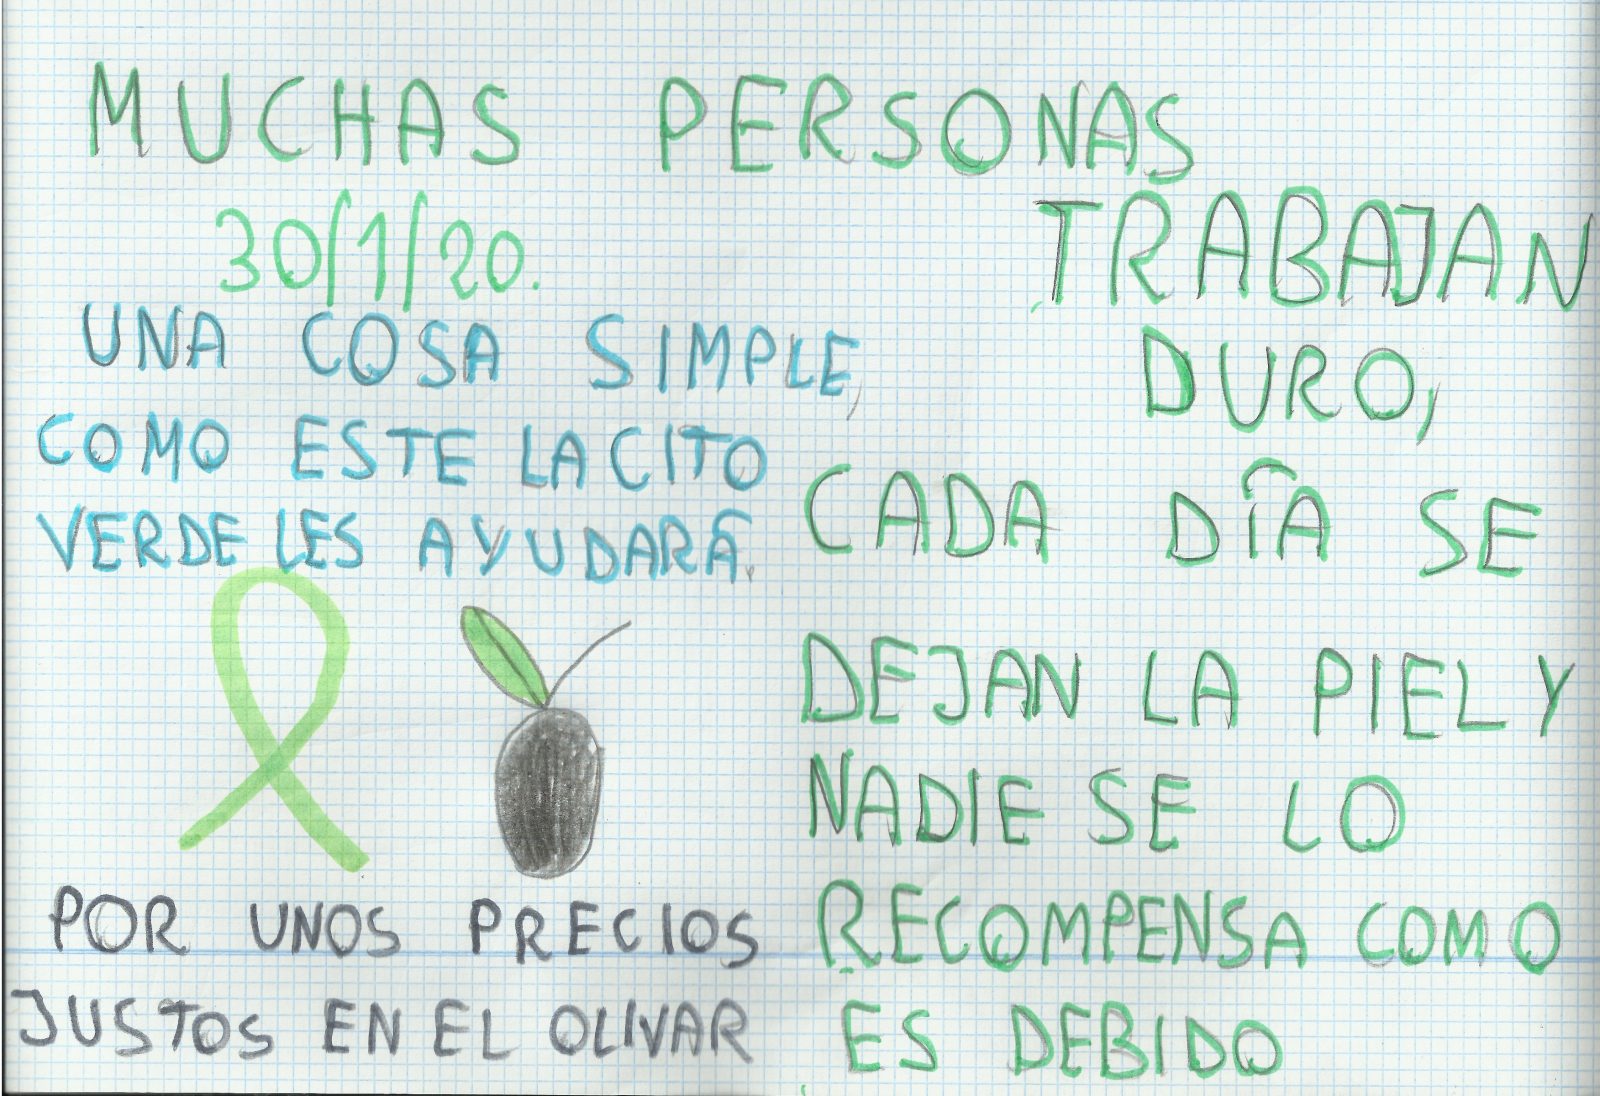 MUCHAS PERSONAS
TRABAJAN
DURO,
CADA DÍA SE
DEJAN LA PIEL Y
NADIE SE LO
RECOMPENSA COMO
ES DEBIDO
30/1/20.
UNA COSA SIMPLE,
COMO ESTE LACITO
VERDE LES AYUDARÁ.
POR UNOS PRECIOS
JUSTOS EN EL OLIVAR